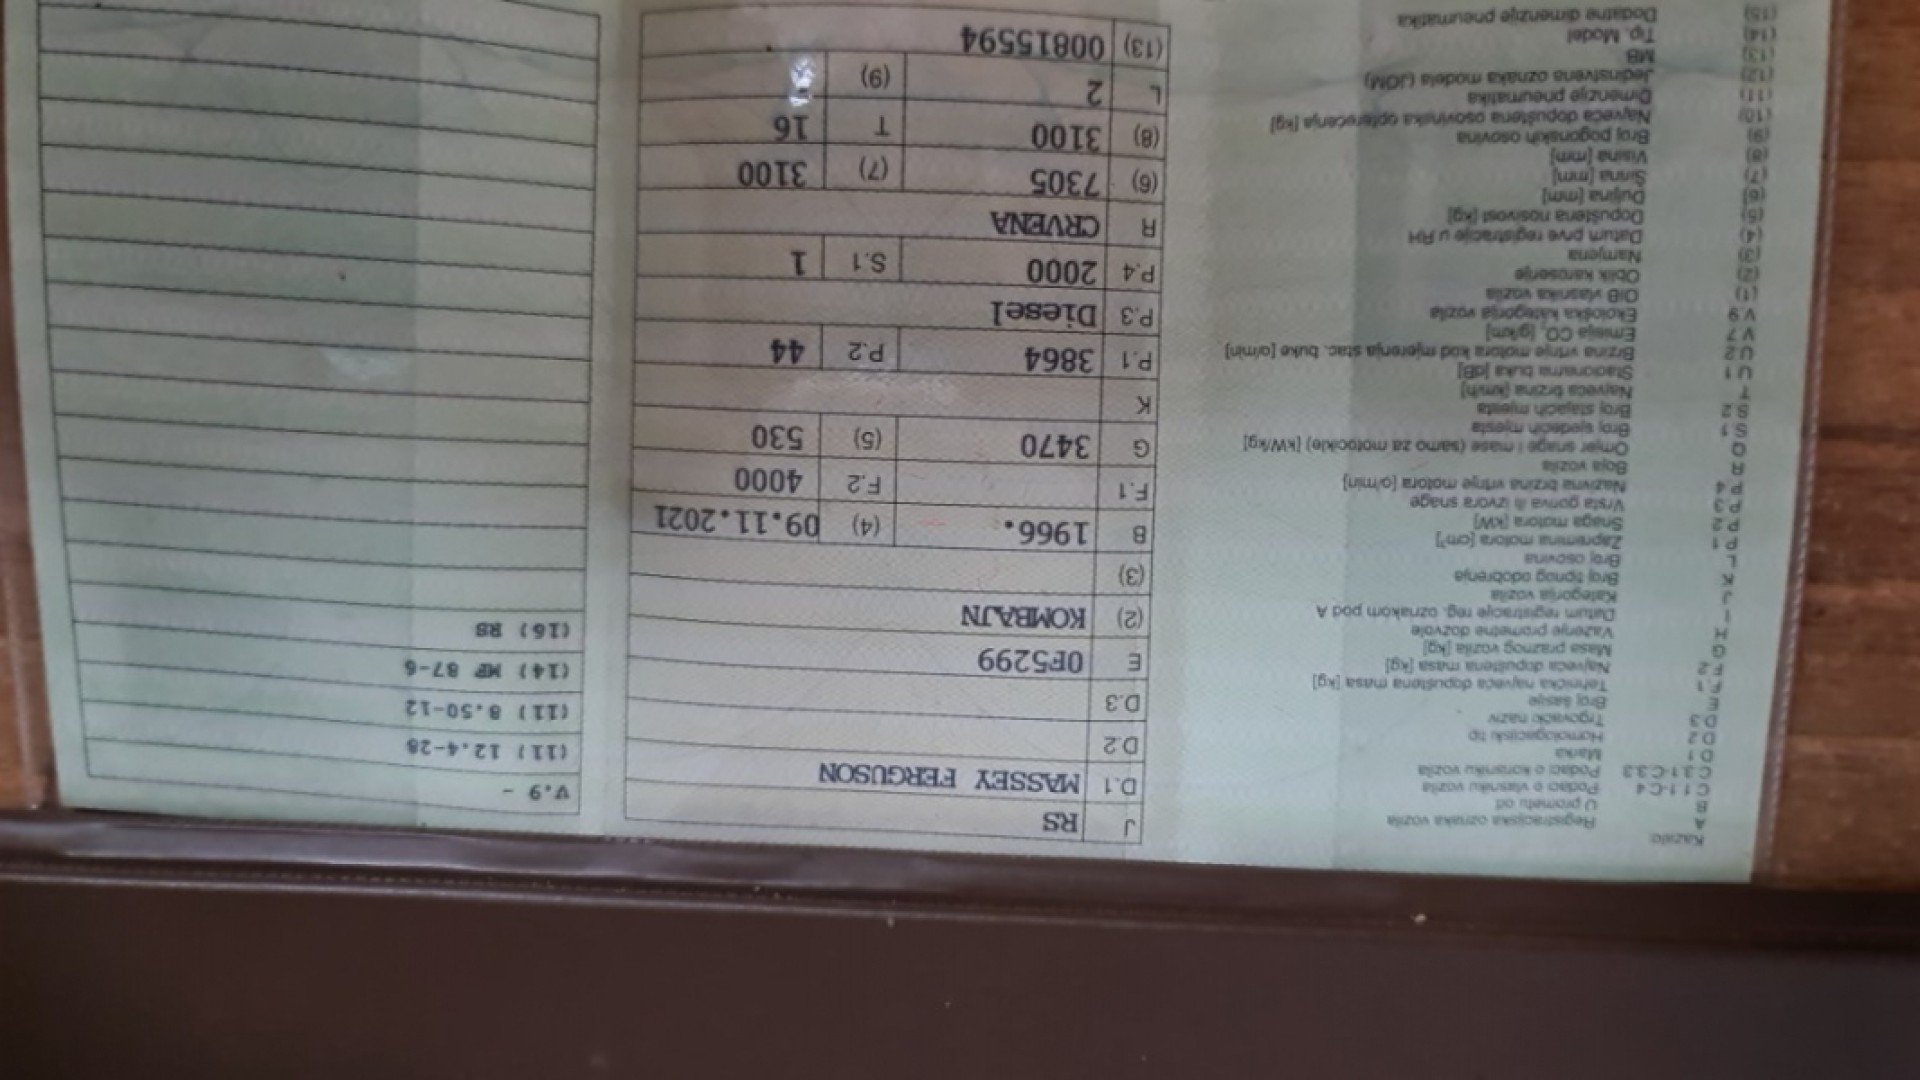 Kazalo:
A Registracijska oznaka vozila
B U prometu od
C.1.1-C.4 Podaci o vlasniku vozila
C.3.1-C.3.3 Podaci o korisniku vozila
D.1 Marka
D.2 Homologacijski tip
D.3 Trgovački naziv
E Broj šasije
F.1 Tehnička najveća dopuštena masa [kg]
F.2 Najveća dopuštena masa [kg]
G Masa praznog vozila [kg]
H Važenje prometne dozvole
I Datum registracije reg. oznakom pod A
J Kategorija vozila
K Broj tipnog odobrenja
L Broj osovina
P.1 Zapremina motora [cm³]
P.2 Snaga motora [kW]
P.3 Vrsta goriva ili izvora snage
P.4 Nazivna brzina vrtnje motora [o/min]
R Boja vozila
Q Omjer snage i mase (samo za motocikle) [kW/kg]
S.1 Broj sjedećih mjesta
S.2 Broj stajaćih mjesta
T Najveća brzina [km/h]
U.1 Stacionarna buka [dB]
U.2 Brzina vrtnje motora kod mjerenja stac. buke [o/min]
V.7 Emisija CO₂ [g/km]
V.9 Ekološka kategorija vozila
(1) OIB vlasnika vozila
(2) Oblik karoserije
(3) Namjena
(4) Datum prve registracije u RH
(5) Dopuštena nosivost [kg]
(6) Duljina [mm]
(7) Širina [mm]
(8) Visina [mm]
(9) Broj pogonskih osovina
(10) Najveća dopuštena osovinska opterećenja [kg]
(11) Dimenzije pneumatika
(12) Jedinstvena oznaka modela (JOM)
(13) MB
(14) Tip, Model
(15) Dodatne dimenzije pneumatika
J RS
D.1 MASSEY FERGUSON
D.2
D.3
E OF5299
(2) KOMBAJN
(3)
B 1966. (4) 09.11.2021
F.1 F.2 4000
G 3470 (5) 530
K
P.1 3864 P.2 44
P.3 Diesel
P.4 2000 S.1 1
R CRVENA
(6) 7305 (7) 3100
(8) 3100 T 16
L 2 (9)
(13) 00815594
V.9 -
(11) 12.4-28
(11) 8.50-12
(14) MF 87-6
(16) RS